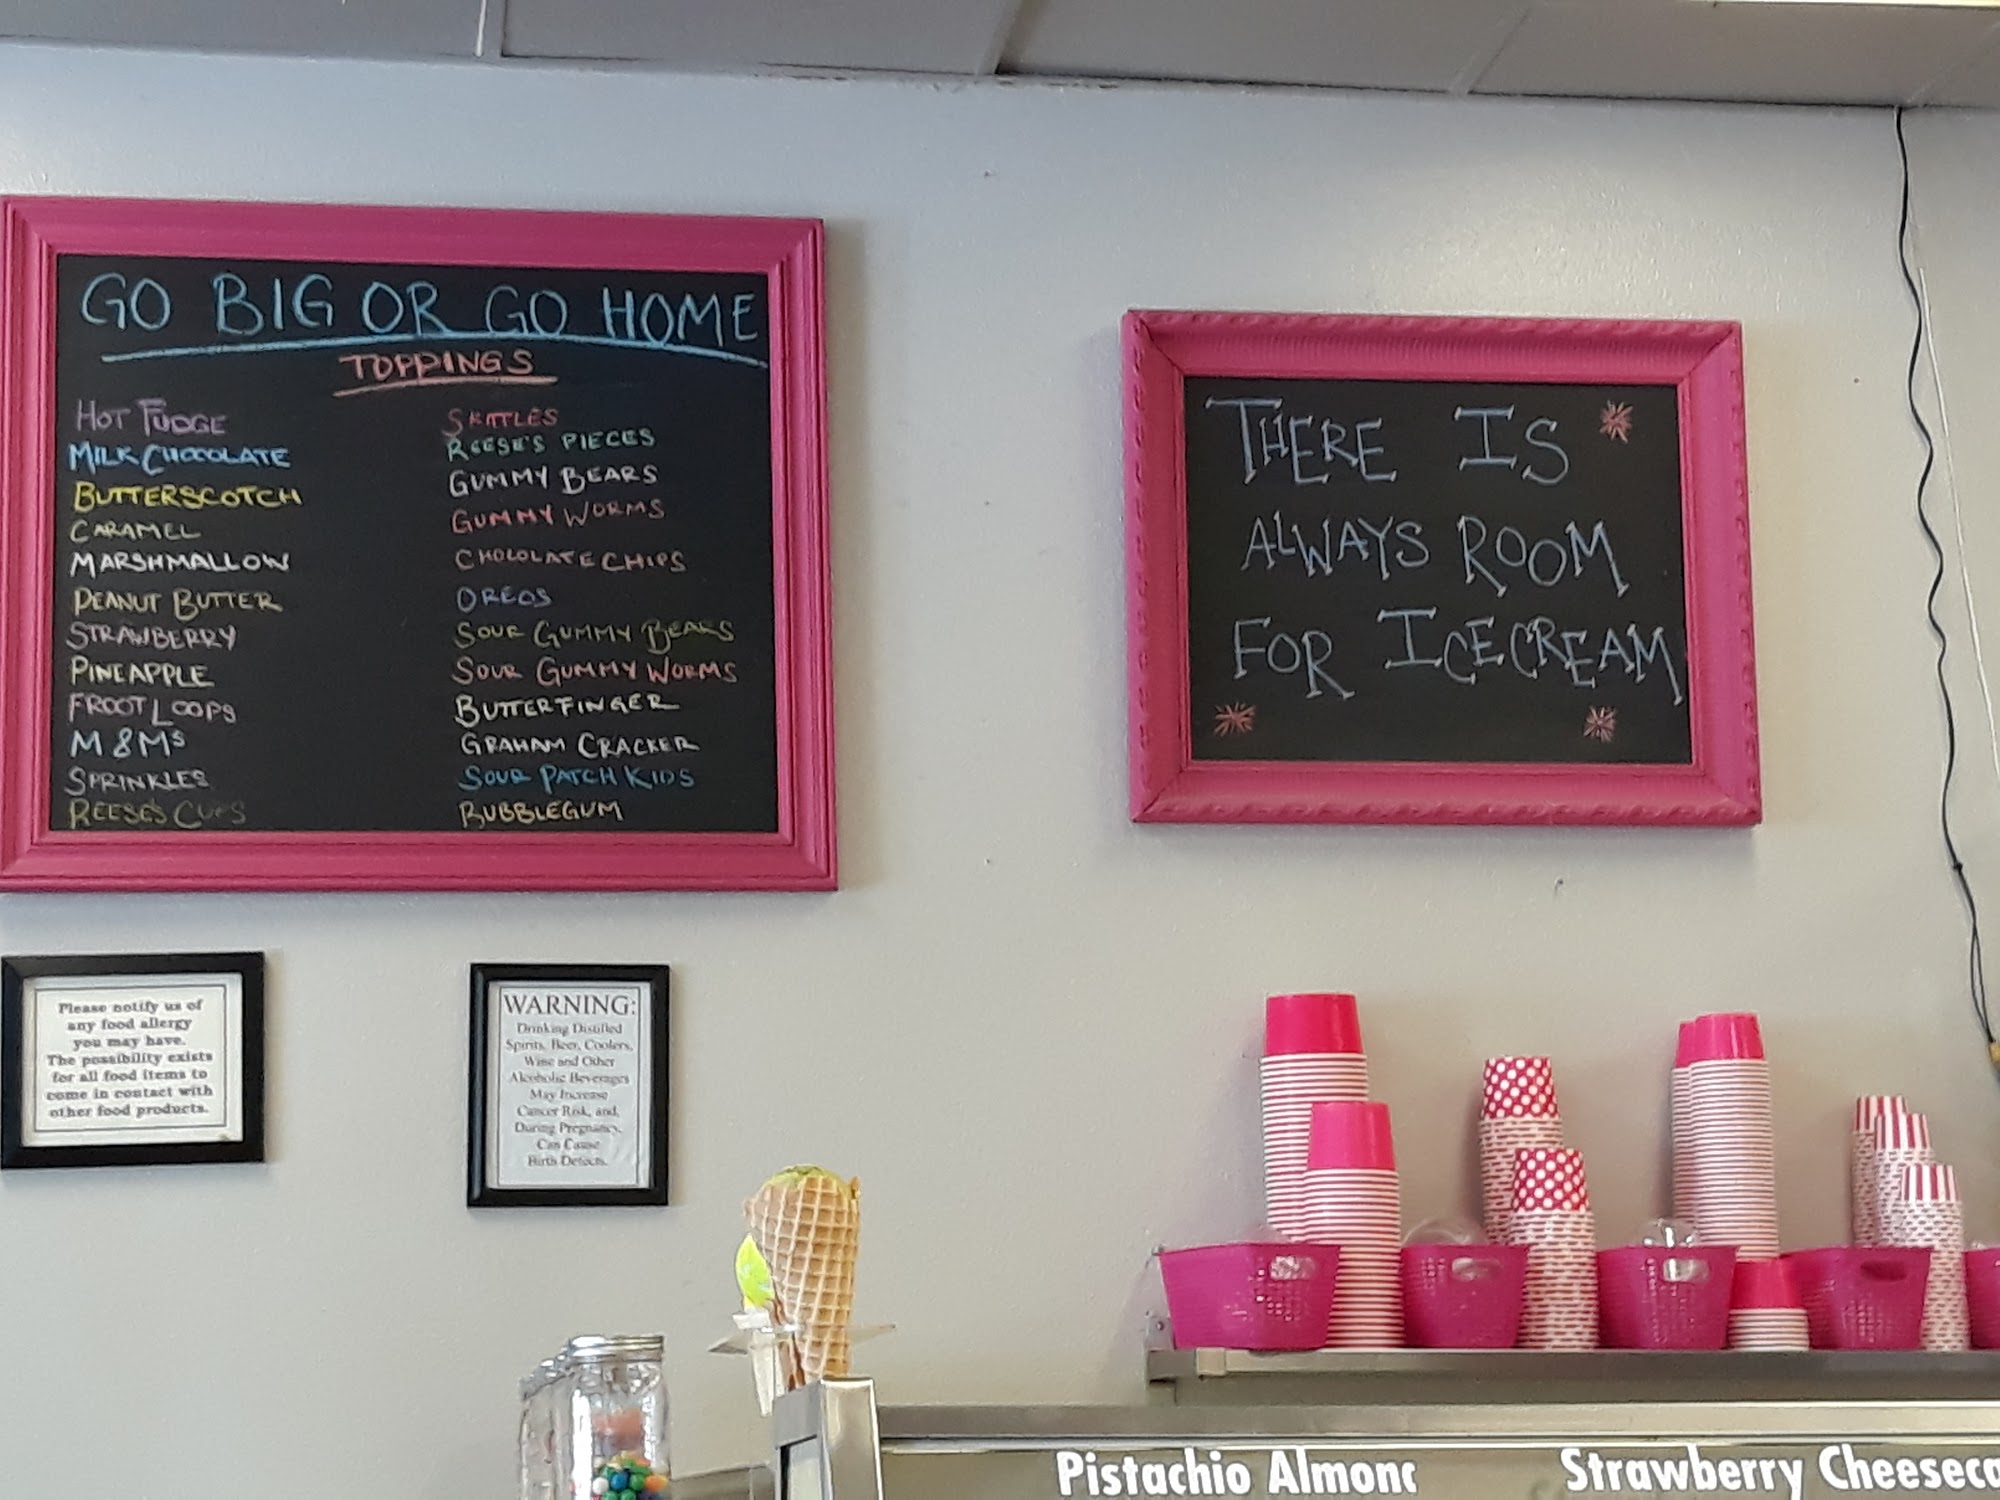 GO BIG OR GO HOME
TOPPINGS
HOT FUDGE
MILK CHOCOLATE
BUTTERSCOTCH
CARAMEL
MARSHMALLOW
PEANUT BUTTER
STRAWBERRY
PINEAPPLE
FROOT LOOPS
M & MS
SPRINKLES
REESE'S CUPS
SKITTLES
REESE'S PIECES
GUMMY BEARS
GUMMY WORMS
CHOCOLATE CHIPS
OREOS
SOUR GUMMY BEARS
SOUR GUMMY WORMS
BUTTERFINGER
GRAHAM CRACKER
SOUR PATCH KIDS
BUBBLEGUM
THERE IS
ALWAYS ROOM
FOR ICECREAM
Please notify us of
any food allergy
you may have.
The possibility exists
for all food items to
come in contact with
other food products.
WARNING:
Drinking Distilled
Spirits, Beer, Coolers,
Wine and Other
Alcoholic Beverages
May Increase
Cancer Risk, and,
During Pregnancy,
Can Cause
Birth Defects.
Pistachio Almond
Strawberry Cheeseca